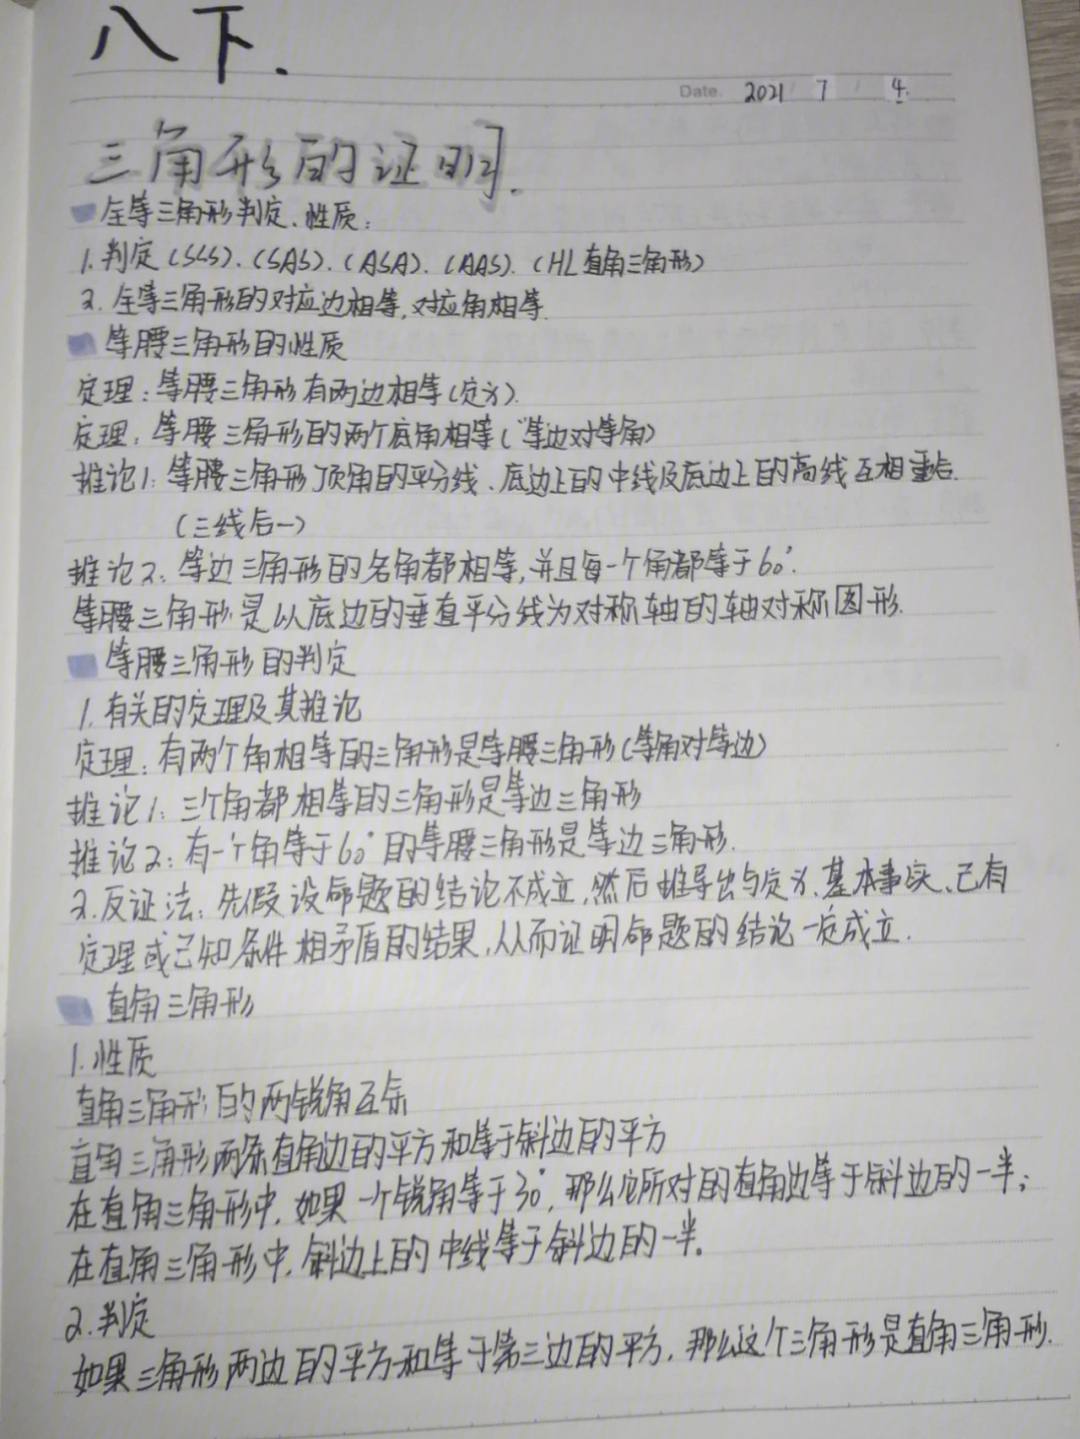 八下.
Date. 2021 / 7 / 4.
三角形的证明.
全等三角形判定、性质:
1.判定(SSS).(SAS).(ASA).(AAS).(HL直角三角形)
2.全等三角形的对应边相等,对应角相等.
等腰三角形的性质
定理:等腰三角形有两边相等(定义).
定理:等腰三角形的两个底角相等(等边对等角)
推论1:等腰三角形顶角的平分线、底边上的中线及底边上的高线互相重合.
(三线合一)
推论2:等边三角形的各角都相等,并且每一个角都等于60°.
等腰三角形是以底边的垂直平分线为对称轴的轴对称图形.
等腰三角形的判定
1.有关的定理及其推论
定理:有两个角相等的三角形是等腰三角形(等角对等边)
推论1:三个角都相等的三角形是等边三角形
推论2:有一个角等于60°的等腰三角形是等边三角形.
2.反证法:先假设命题的结论不成立,然后推导出与定义、基本事实、已有
定理或已知条件相矛盾的结果,从而证明命题的结论一定成立.
直角三角形
1.性质
直角三角形的两锐角互余
直角三角形两条直角边的平方和等于斜边的平方
在直角三角形中,如果一个锐角等于30°,那么它所对的直角边等于斜边的一半;
在直角三角形中,斜边上的中线等于斜边的一半.
2.判定
如果三角形两边的平方和等于第三边的平方,那么这个三角形是直角三角形.